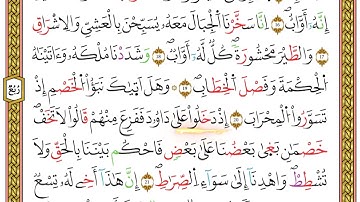 إِنَّهُۥٓ أَوَّابٌ ١٧ إِنَّا سَخَّرْنَا ٱلْجِبَالَ مَعَهُۥ يُسَبِّحْنَ بِٱلْعَشِىِّ وَٱلْإِشْرَاقِ
١٨ وَٱلطَّيْرَ مَحْشُورَةً كُلٌّ لَّهُۥٓ أَوَّابٌ ١٩ وَشَدَدْنَا مُلْكَهُۥ وَءَاتَيْنَٰهُ
ٱلْحِكْمَةَ وَفَصْلَ ٱلْخِطَابِ ٢٠ وَهَلْ أَتَىٰكَ نَبَؤُا۟ ٱلْخَصْمِ إِذْ
تَسَوَّرُوا۟ ٱلْمِحْرَابَ ٢١ إِذْ دَخَلُوا۟ عَلَىٰ دَاوُۥدَ فَفَزِعَ مِنْهُمْ قَالُوا۟ لَا تَخَفْ
خَصْمَانِ بَغَىٰ بَعْضُنَا عَلَىٰ بَعْضٍ فَٱحْكُم بَيْنَنَا بِٱلْحَقِّ وَلَا
تُشْطِطْ وَٱهْدِنَآ إِلَىٰ سَوَآءِ ٱلصِّرَٰطِ إِنَّ هَٰذَآ أَخِى لَهُۥ تِسْعٌ